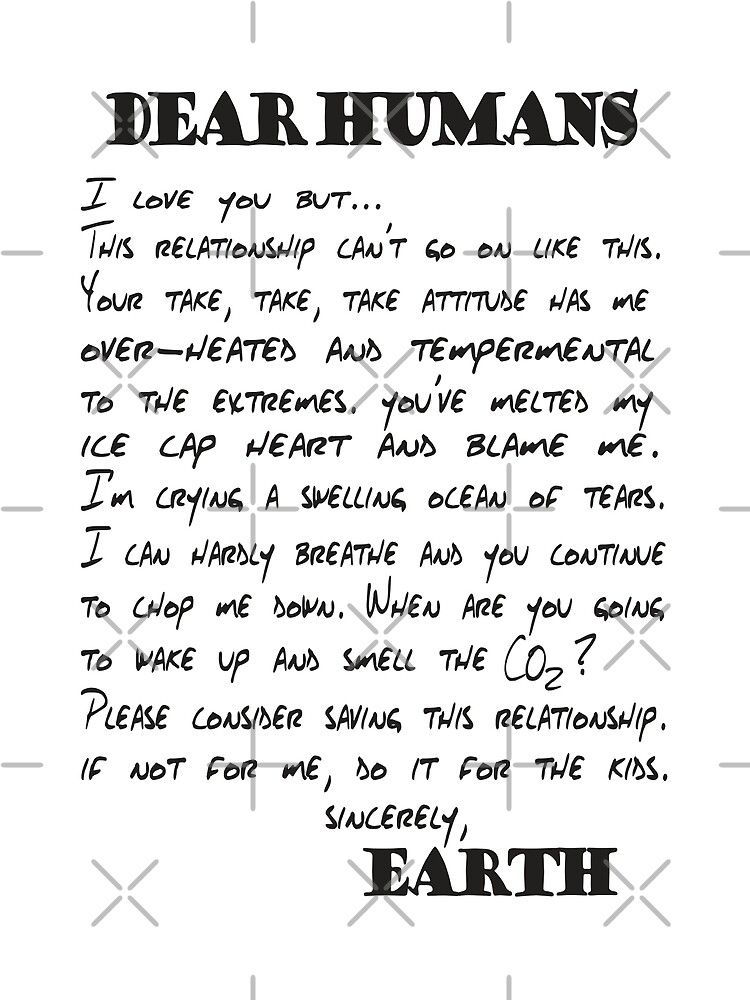 DEAR HUMANS
I LOVE YOU BUT...
THIS RELATIONSHIP CAN'T GO ON LIKE THIS.
YOUR TAKE, TAKE, TAKE ATTITUDE HAS ME
OVER-HEATED AND TEMPERMENTAL
TO THE EXTREMES. YOU'VE MELTED MY
ICE CAP HEART AND BLAME ME.
I'M CRYING A SWELLING OCEAN OF TEARS.
I CAN HARDLY BREATHE AND YOU CONTINUE
TO CHOP ME DOWN. WHEN ARE YOU GOING
TO WAKE UP AND SMELL THE CO₂?
PLEASE CONSIDER SAVING THIS RELATIONSHIP.
IF NOT FOR ME, DO IT FOR THE KIDS.
SINCERELY,
EARTH